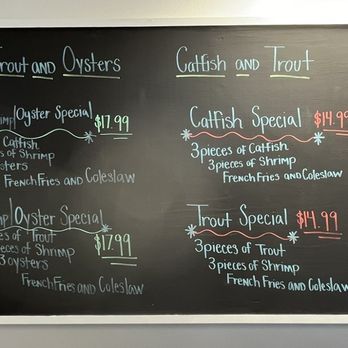 Trout and Oysters
Oyster Special $17.99
Catfish
of Shrimp
French Fries and Coleslaw
Oyster Special
of Trout
of Shrimp
$17.99
3 oysters
French Fries and Coleslaw
Catfish and Trout
Catfish Special $14.99
3 pieces of Catfish
3 pieces of Shrimp
French Fries and Coleslaw
Trout Special $14.99
3 pieces of Trout
3 pieces of Shrimp
French Fries and Coleslaw